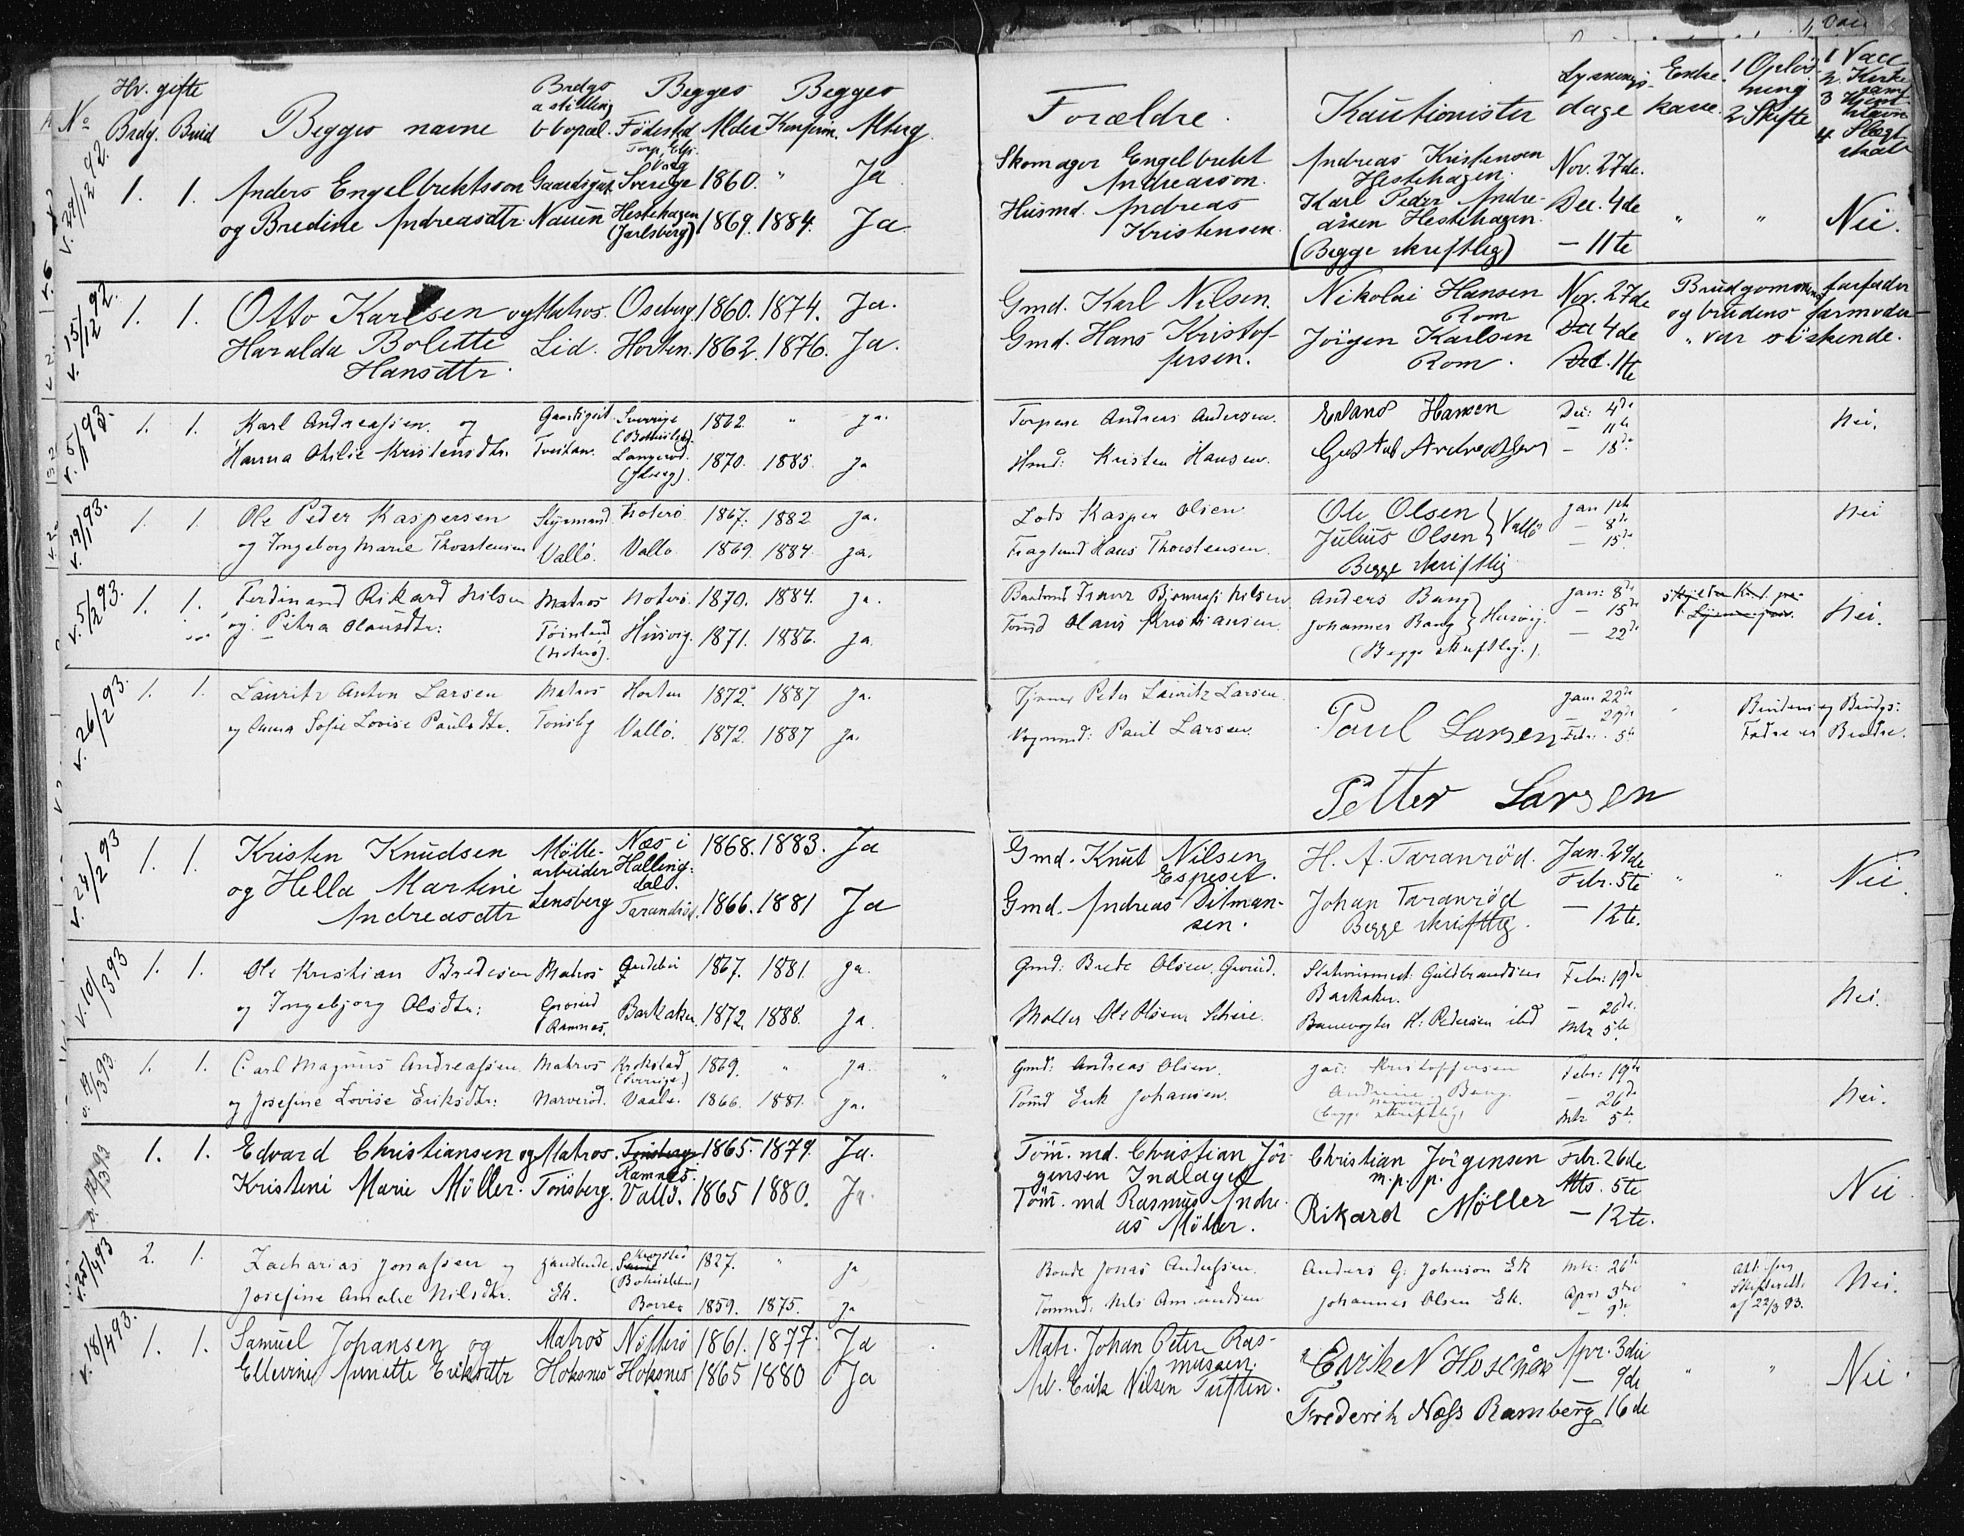 No Hv. gifte Brdg. Brud Begges navne Brdgs stilling bopæl. Begges Fødested Alder Begges Konfirm. Altberg.
Forældre. Kautionister Lysningsdage Enkekasse 1 Opløsning 2 Skifte 1 Vacc 2 Kirke
v. 29/12 92. 1. 1. Anders Engelbrektsson Gaardsgut Sverige 1860. " Ja
og Bredine Andreasdtr. Nauen Hestehagen (Jarlsberg) 1869. 1884. Ja
Skomager Engelbrekt Andreasson. Andreas Kristensen Hestehagen. Nov. 27de.
Husmd. Andreas Kristensen. Karl Peder Andreassen Hestehagen. Dec. 4de " " Nei.
(Begge skriftlig) — 11te
v. 15/12 92. 1. 1. Otto Karlsen og Matros. Oseberg. 1860. 1874. Ja.
Haralda Bolette Lid. Horten. 1862. 1876. Ja.
Hansdtr.
Gmd. Karl Nilsen. Nikolai Hansen Rom Nov. 27de Brudgommens farfader
Gmd. Hans Kristoffersen. Jörgen Karlsen Rom. Dec 4de og brudens farmoder
Dec. 11te var søskende.
v. 5/1 93. 1. 1. Karl Andreassen og Gaardsgut. Sverrige 1862 " ja
Hanna Otilie Kristensdtr. Tveitan. Langerød. 1870. 1885. ja
Torpere Andreas Andersen. Erland Hansen Dec: 4de nei.
— 11te
Hmd: Kristen Hansen. Gustav Andreassen — 18de
v. 19/1 93. 1. 1. Ole Peder Kaspersen Styrmand Noterö 1867. 1882 ja.
og Ingeborg Marie Thorstensen Vallö. Vallö. 1869. 1884. ja.
Lods Kasper Olsen Ole Olsen } Vallö Jan 1ste nei
— 8de
Hans Thorstensen. Julius Olsen — 15de
Begge skriftlig
v. 5/2 93. 1. 1. Ferdinand Rikard Nilsen Matros Noterö. 1870. 1884. ja.
og Petra Olausdtr: (Noterö). Husvig. 1871. 1886. ja.
Nilsen Anders Bang } Husvig. Jan: 8de Nei.
Tømd Olaus Kristiansen Johannes Bang — 15de
(Begge skriftlig.) — 22de
v. 26/2 93. 1. 1. Lauritz Anton Larsen Matros Horten 1872. 1887 ja.
og Anna Sofie Lovise Paulsdtr. Tønsbg Vallö. 1872. 1887 ja.
Peter Lauritz Larsen Paul Larsen Jan 22de " Brudens og Brudgs:
— 29de
Paul Larsen Febr. 5te Fædre er Brødre.
Petter Larsen
v. 24/2 93 1. 1. Kristen Knudsen Möllearbeider Næs i Hallingdal. 1868. 1883. Ja
og Hella Martine Sensberg Tarandrød. 1866. 1881 Ja
Andreasdtr
Gmd. Knut Nilsen Espeset. H. A. Taranröd. Jan. 29de
Febr. 5te " " Nei.
Gmd. Andreas Ditmansen. Johan Taranröd — 12te.
Begge skriftlig.
v. 10/3 93 1. 1. Ole Kristian Bredesen Matros Andebu 1867. 1881. ja.
og Ingebjørg Olsdtr: Ramnes. Barkaker. 1872. 1888. ja.
Gmd: Brede Olsen Stationsmest. Guldbrandsen Barkaker. Febr: 19de
— 26de. Nei.
Møller Ole Olsen Banevogter H: Pedersen ibd Mrts 5te
93 1. 1. Carl Magnus Andreassen Matros Krokstad (Sverrige.) 1869. " ja.
og Josefine Lovise Eriksdtr: Narverød. Vaale. 1866. 1881. ja.
Gmd: Andreas Olsen. Kristoffersen Febr: 19de
Tømd Erik Johansen. Andrine Bang — 26de Nei.
(begge skriftlig) Mrts 5te
93 1. 1. Edvard Christiansen og Matros. Tönsberg Ramnes. 1865. 1879. Ja.
Kristeni Marie Möller. Tönsberg. Vallö. 1865 1880. Ja.
Töm. md. Christian Jörgensen Indlaget Christian Jörgensen m. p. p. Febr. 26de
Mts. 5te Nei
Töm. md Rasmus Andreas Möller. Rikard Möller — 12te.
v. 25/4 93 2. 1. Zacharias Jonassen og Handlende. (Bohuslehn) 1827. " ja
Josefine Amalie Nilsdtr. Ek. Borre 1859. 1875. ja
Bonde Jonas Anderssen. Anders G: Johnson Ek Mrts: 26de " Att. fra Skifterett. Nei.
Tømmd: Nils Amundsen Johannes Olsen Ek. Apr. 3die af 22/3 93.
— 9de
v. 18/4 93. 1. 1. Samuel Johansen og Matros Nötterö 1861. 1877. Ja
Ellevine Annette Eriksdtr Höksnes Höksnes 1865 1880 Ja
Matr. Johan Peter Rasmussen. Erik N Hoxnæs Apr. 3die
— 9de " " Nei.
Arb. Erik Nilsen Tuften. Frederik Næss Ramberg 16de